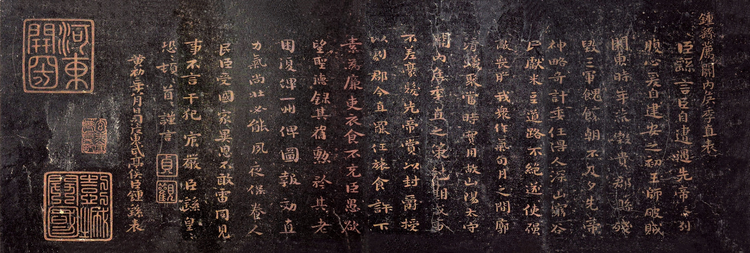 鍾繇薦關內侯季直表
臣繇言臣自遭遇先帝忝列
腹心爰自建安之初王師破賊
關東時年荒穀貴郡縣殘
毀三軍餽饟朝不及夕先帝
神略奇計委任得人深山窮谷
民獻米豆道路不絕遂使強
敵喪膽我眾作氣旬月之間廓
清蟻聚當時實用故山陽太守
關內侯季直之策剋期成事
不差豪髮先帝賞以封爵授
以劇郡今直罷任旅食許下
素為廉吏衣食不充臣愚欲
望聖德錄其舊勳矜其老
困復俾一州俾圖報效直
力氣尚壯必能夙夜保養人
民臣受國家異恩不敢雷同見
事不言干犯宸嚴臣繇皇
恐頓首謹言
貞觀
黃初二年八月日司徒東武亭侯臣鍾繇表
河東